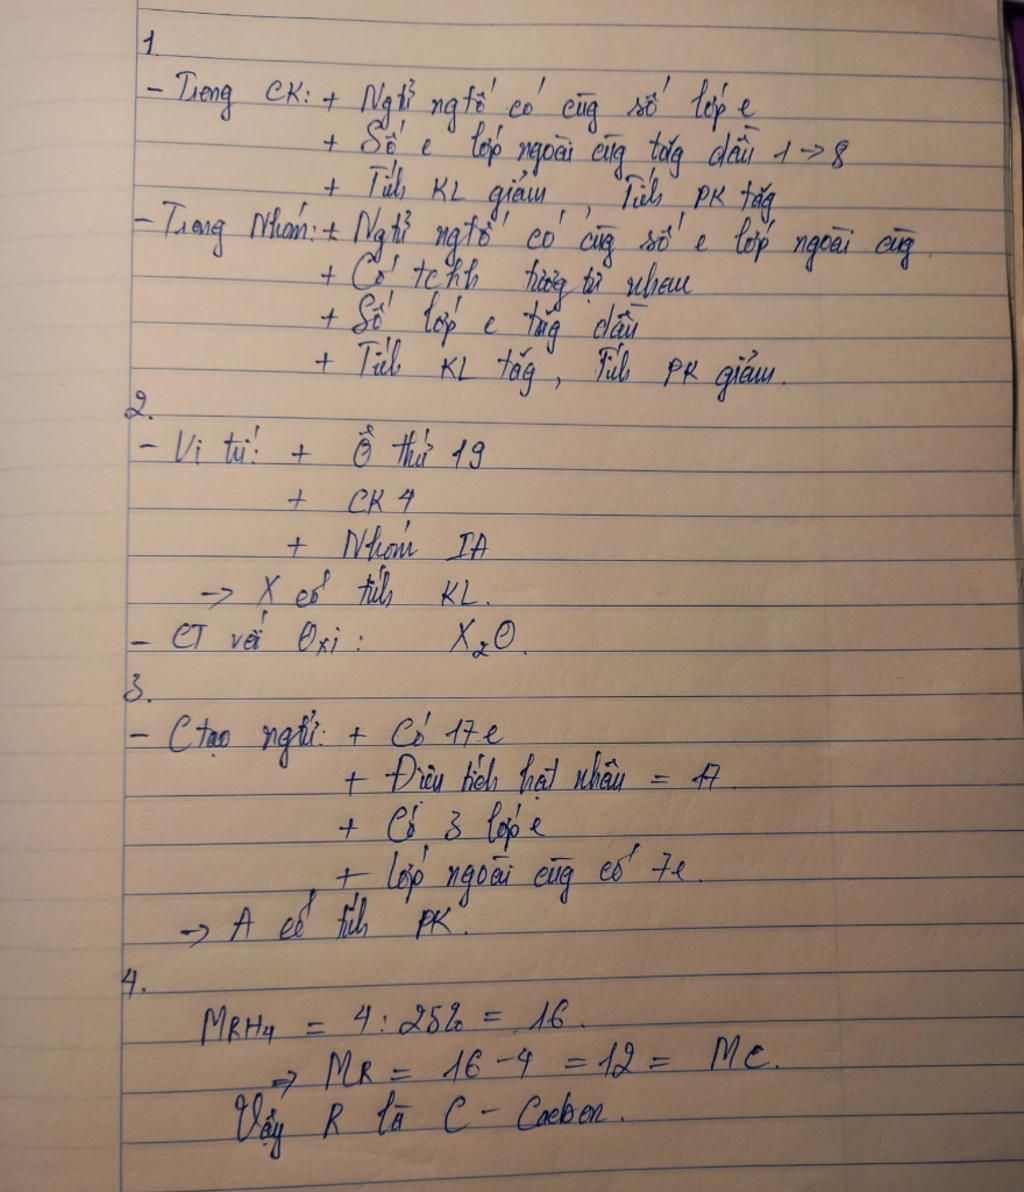 1
- Trong CK: + Ngtử ngtố có cùg số lớp e
+ Số e lớp ngoài cùg tăg dần 1 → 8
+ Tính KL giảm, Tính PK tăg
- Trong Nhóm: + Ngtử ngtố có cùg số e lớp ngoài cùg.
+ Có tchh tươg tự nhau
+ Số lớp e tăg dần
+ Tính KL tăg, Tính PK giảm.
2.
- Vị trí: + Ô thứ 19
+ CK 4
+ Nhóm IA
→ X có tính KL.
- CT với Oxi: X₂O.
3.
- Ctạo ngtử: + Có 17e
+ Điện tích hạt nhân = 17.
+ Có 3 lớp e
+ lớp ngoài cùg có 7e.
→ A có tính PK.
4.
MRH₄ = 4 : 25% = 16.
⇒ MR = 16 - 4 = 12 = MC.
Vậy R là C - Cacbon.